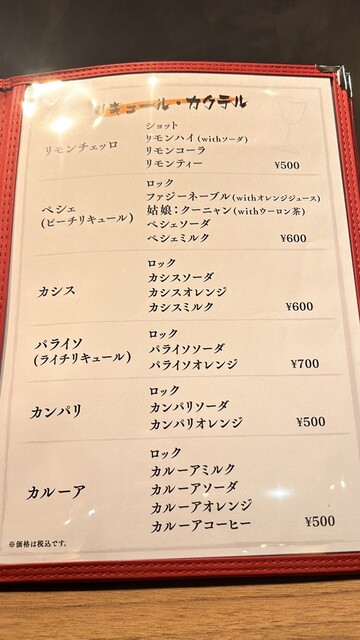 リキュール・カクテル
リモンチェッロ
ショット
リモンハイ(withソーダ)
リモンコーラ
リモンティー ¥500
ペシェ
(ピーチリキュール)
ロック
ファジーネーブル(withオレンジジュース)
姑娘：クーニャン(withウーロン茶)
ペシェソーダ
ペシェミルク ¥600
カシス
ロック
カシスソーダ
カシスオレンジ
カシスミルク ¥600
パライソ
(ライチリキュール)
ロック
パライソソーダ
パライソオレンジ ¥700
カンパリ
ロック
カンパリソーダ
カンパリオレンジ ¥500
カルーア
ロック
カルーアミルク
カルーアソーダ
カルーアオレンジ
カルーアコーヒー ¥500
※価格は税込です。